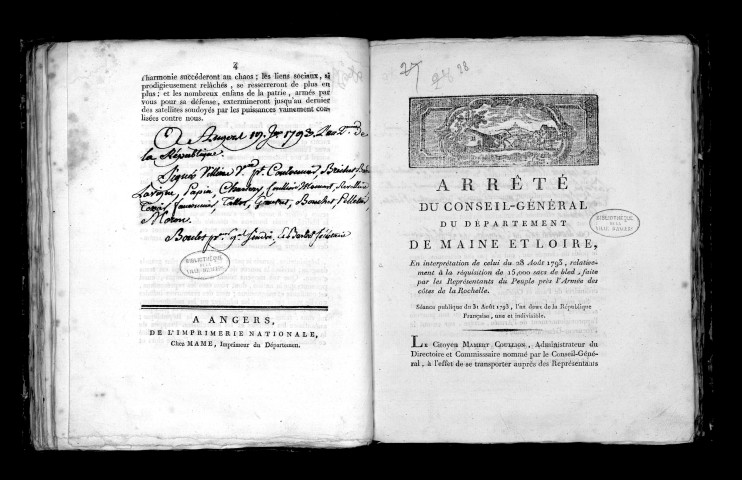 4
l'harmonie succéderont au chaos; les liens sociaux, si
prodigieusement relâchés, se resserreront de plus en
plus; et les nombreux enfans de la patrie, armés par
vous pour sa défense, extermineront jusqu'au dernier
des satellites soudoyés par les puissances vainement coa-
lisées contre nous.
A Angers 19. 1793. L'an 2.me de
la République.
Signés Villier Coulonnier, Brichet,
Lavigne, Papin, Charton, Coullion
Tessié, Tallot, Gautret, Bouchet, Pelletier,
Moron.
Boulet secrétaire
BIBLIOTHÈQUE
DE LA
VILLE D'ANGERS
A ANGERS,
DE L'IMPRIMERIE NATIONALE,
Chez MAME, Imprimeur du Département.
27
28
ARRÊTÉ
DU CONSEIL-GÉNÉRAL
DU DÉPARTEMENT
DE MAINE ET LOIRE,
BIBLIOTHÈQUE
DE LA
VILLE D'ANGERS
En interprétation de celui du 28 Août 1793, relative-
ment à la réquisition de 15,000 sacs de bled, faite
par les Représentans du Peuple près l'Armée des
côtes de la Rochelle.
Séance publique du 31 Août 1793, l'an deux de la République
Française, une et indivisible.
LE Citoyen MAMERT COULLION, Administrateur du
Directoire et Commissaire nommé par le Conseil-Géné-
ral, à l'effet de se transporter auprès des Représentans